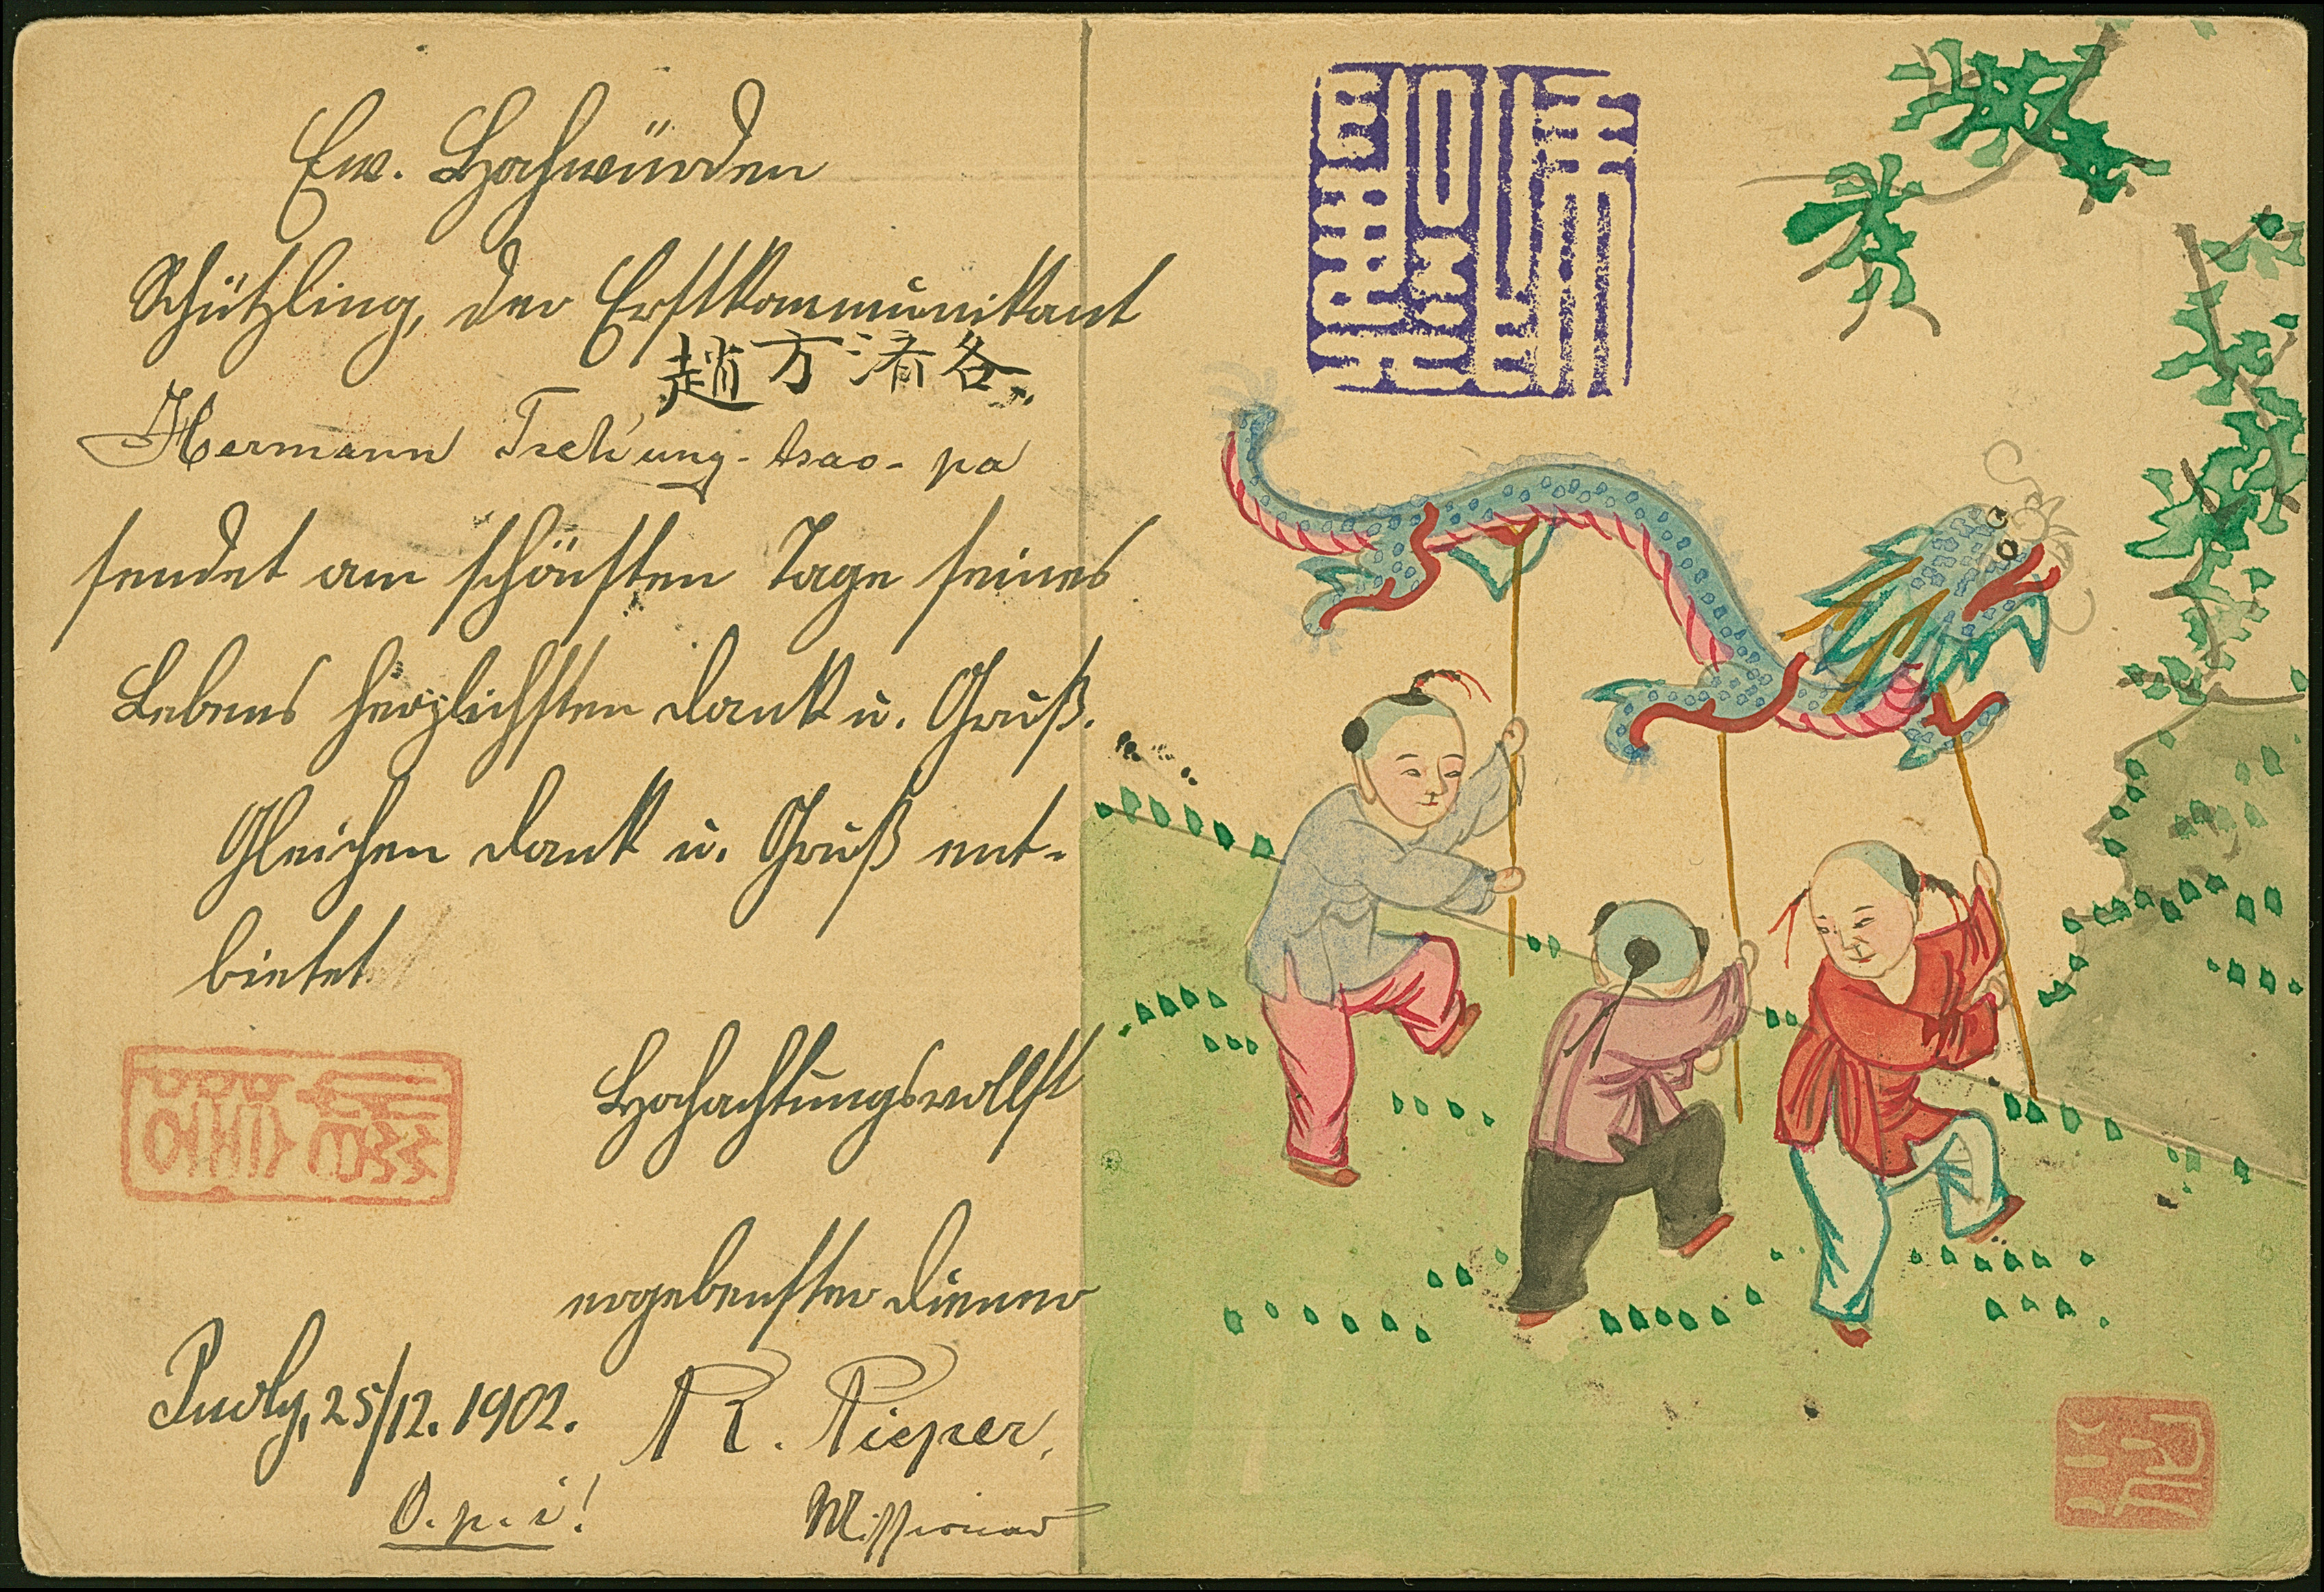 Ew. Hochwürden
Schützling, der Erstkommunikant
趙方濟各
Hermann Tsch'ung-tsao-pa
sendet am schönsten Tage seines
Lebens herzlichsten Dank u. Gruß.
Gleichen Dank u. Gruß ent-
bietet
Hochachtungsvollst
ergebenster Diener
Puoly, 25/12. 1902.
R. Pieper,
O. p. i!
Missionar